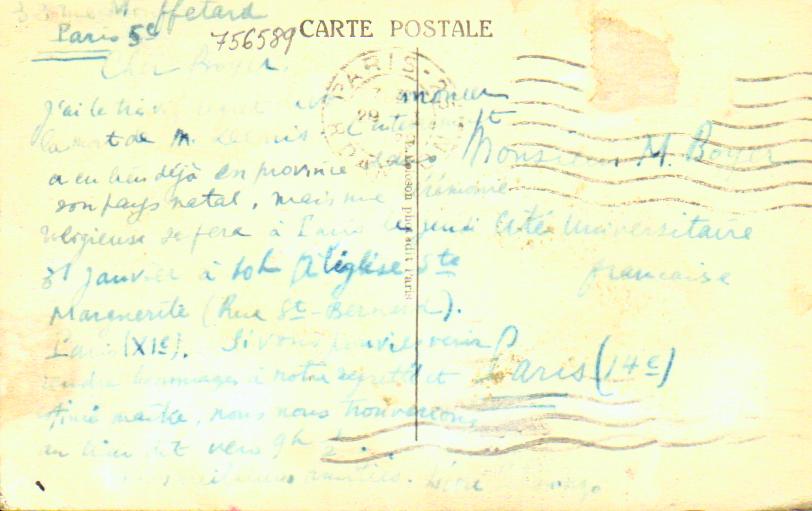 Mouffetard
Paris 5e
756589
CARTE POSTALE
Cher Boyer,
J'ai le
la mort de M. l'enterrement
a eu lieu déjà en province dans
son pays natal, mais une
religieuse se fera à Paris le jeudi
31 Janvier à 10h à l'église Ste
Marguerite (Rue St-Bernard).
Paris (XIe). Si vous pouviez venir
rendre hommages à notre regretté et
Aimé maître, nous nous trouverons
au lieu dit vers 9h ½
meilleures amitiés.
PARIS
29
Monsieur M. Boyer
Cité Universitaire
française
Paris (14e)